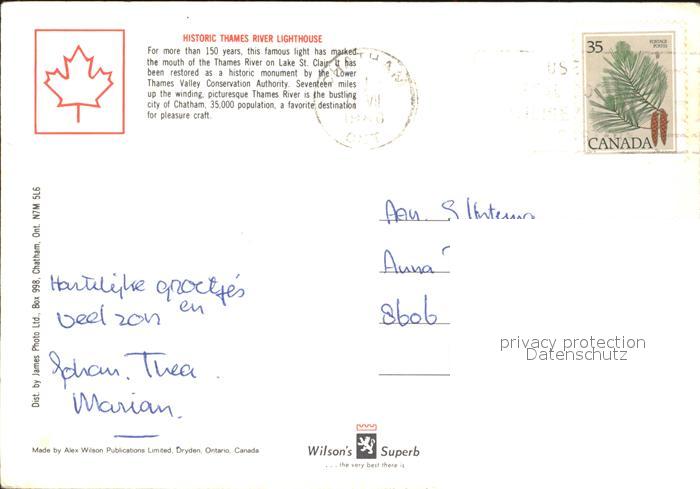 HISTORIC THAMES RIVER LIGHTHOUSE
For more than 150 years, this famous light has marked
the mouth of the Thames River on Lake St. Clair. It has
been restored as a historic monument by the Lower
Thames Valley Conservation Authority. Seventeen miles
up the winding, picturesque Thames River is the bustling
city of Chatham, 35,000 population, a favorite destination
for pleasure craft.
CHATHAM
ONT
35
POSTAGE
POSTES
CANADA
Dist. by James Photo Ltd., Box 998, Chatham, Ont. N7M 5L6
Aan.
Anna
8606
Hartelijke groetjes
en
veel zon
Johan. Thea.
Marian.
privacy protection
Datenschutz
Made by Alex Wilson Publications Limited, Dryden, Ontario, Canada
Wilson's Superb
...the very best there is